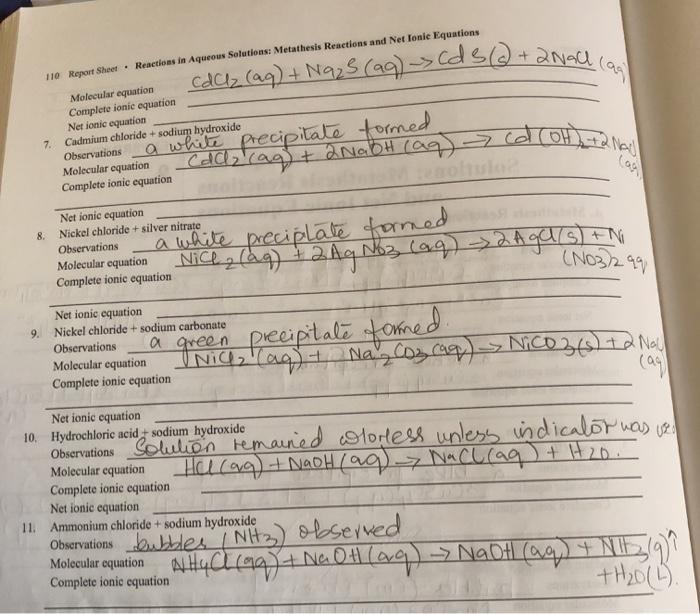 110 Report Sheet • Reactions in Aqueous Solutions: Metathesis Reactions and Net Ionic Equations
Molecular equation CdCl2 (aq) + Na2S (aq) → CdS(s) + 2NaCl (aq)
Complete ionic equation
Net ionic equation
7. Cadmium chloride + sodium hydroxide
Observations a white precipitate formed
Molecular equation CdCl2 (aq) + 2NaOH (aq) → Cd(OH)2 + 2NaCl (aq)
Complete ionic equation
Net ionic equation
8. Nickel chloride + silver nitrate
Observations a white preciplate formed
Molecular equation NiCl2 (aq) + 2AgNO3 (aq) → 2AgCl(s) + Ni
(NO3)2 aq
Complete ionic equation
Net ionic equation
9. Nickel chloride + sodium carbonate
Observations a green precipitate formed.
Molecular equation NiCl2 (aq) + Na2CO3 (aq) → NiCO3(s) + 2NaCl
(aq)
Complete ionic equation
Net ionic equation
10. Hydrochloric acid + sodium hydroxide
Observations Solution remained colorless unless indicator was
Molecular equation HCl (aq) + NaOH (aq) → NaCl(aq) + H2O.
Complete ionic equation
Net ionic equation
11. Ammonium chloride + sodium hydroxide
Observations bubbles (NH3) observed
Molecular equation NH4Cl (aq) + NaOH (aq) → NaOH (aq) + NH3(g)↑
+H2O(L).
Complete ionic equation